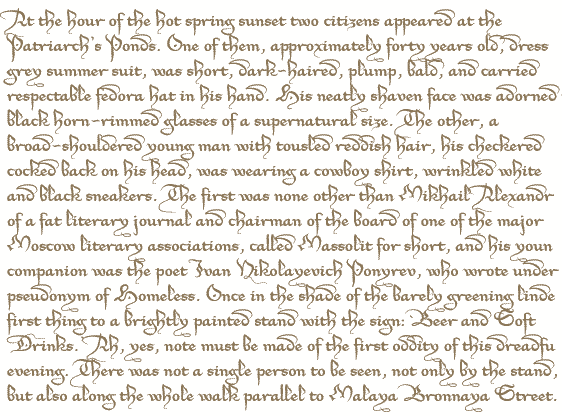 At the hour of the hot spring sunset two citizens appeared at the
Patriarch's Ponds. One of them, approximately forty years old, dress
grey summer suit, was short, dark-haired, plump, bald, and carried
respectable fedora hat in his hand. His neatly shaven face was adorned
black horn-rimmed glasses of a supernatural size. The other, a
broad-shouldered young man with tousled reddish hair, his checkered
cocked back on his head, was wearing a cowboy shirt, wrinkled white
and black sneakers. The first was none other than Mikhail Alexandr
of a fat literary journal and chairman of the board of one of the major
Moscow literary associations, called Massolit for short, and his youn
companion was the poet Ivan Nikolayevich Ponyrev, who wrote under
pseudonym of Homeless. Once in the shade of the barely greening linde
first thing to a brightly painted stand with the sign: Beer and Soft
Drinks. Ah, yes, note must be made of the first oddity of this dreadfu
evening. There was not a single person to be seen, not only by the stand,
but also along the whole walk parallel to Malaya Bronnaya Street.